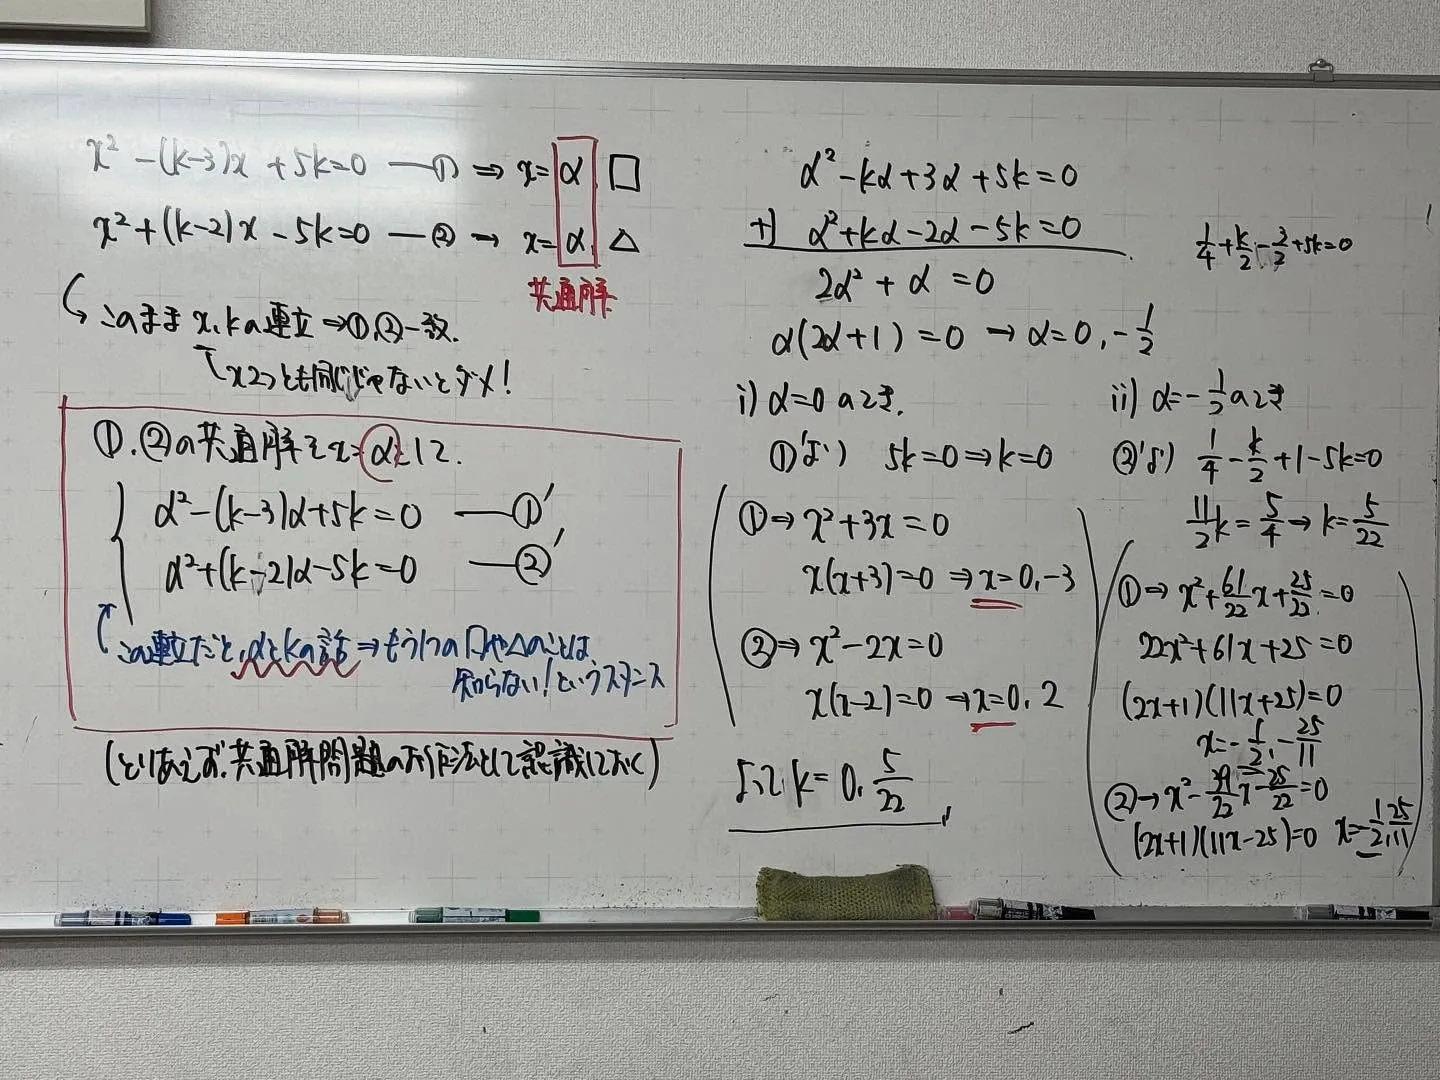 x² -(k-3)x + 5k=0 ―① ⇒ x= α, □
x²+(k-2)x - 5k=0 ―② → x= α, △
共通解
このまま x, kの連立⇒①,②一致.
(x2つとも同じじゃないとダメ!
①.②の共通解をx=αとして.
α²-(k-3)α+5k=0 ―①'
α²+(k-2)α-5k=0 ―②'
この連立だと, αとkの話⇒もう1つの□や△のことは
知らない!というスタンス
(とりあえず, 共通解問題のお作法として認識しておく)
α²-kα+3α+5k=0
+) α²+kα-2α-5k=0
2α²+α =0
α(2α+1)=0 → α=0, -1/2
i) α=0のとき.
①'より 5k=0⇒k=0
①⇒ x²+3x=0
x(x+3)=0 ⇒ x=0, -3
②⇒ x²-2x=0
x(x-2)=0 → x=0, 2
よって k=0, 5/22
1/4+k/2-3/2+5k=0
ii) α=-1/2のとき
②'より 1/4-k/2+1-5k=0
11/2k=5/4→k=5/22
①⇒ x²+61/22x+25/22=0
22x²+61x+25=0
(2x+1)(11x+25)=0
x=-1/2, -25/11
②→x²-39/22x-25/22=0
(2x+1)(11x-25)=0 x=-1/2, 25/11